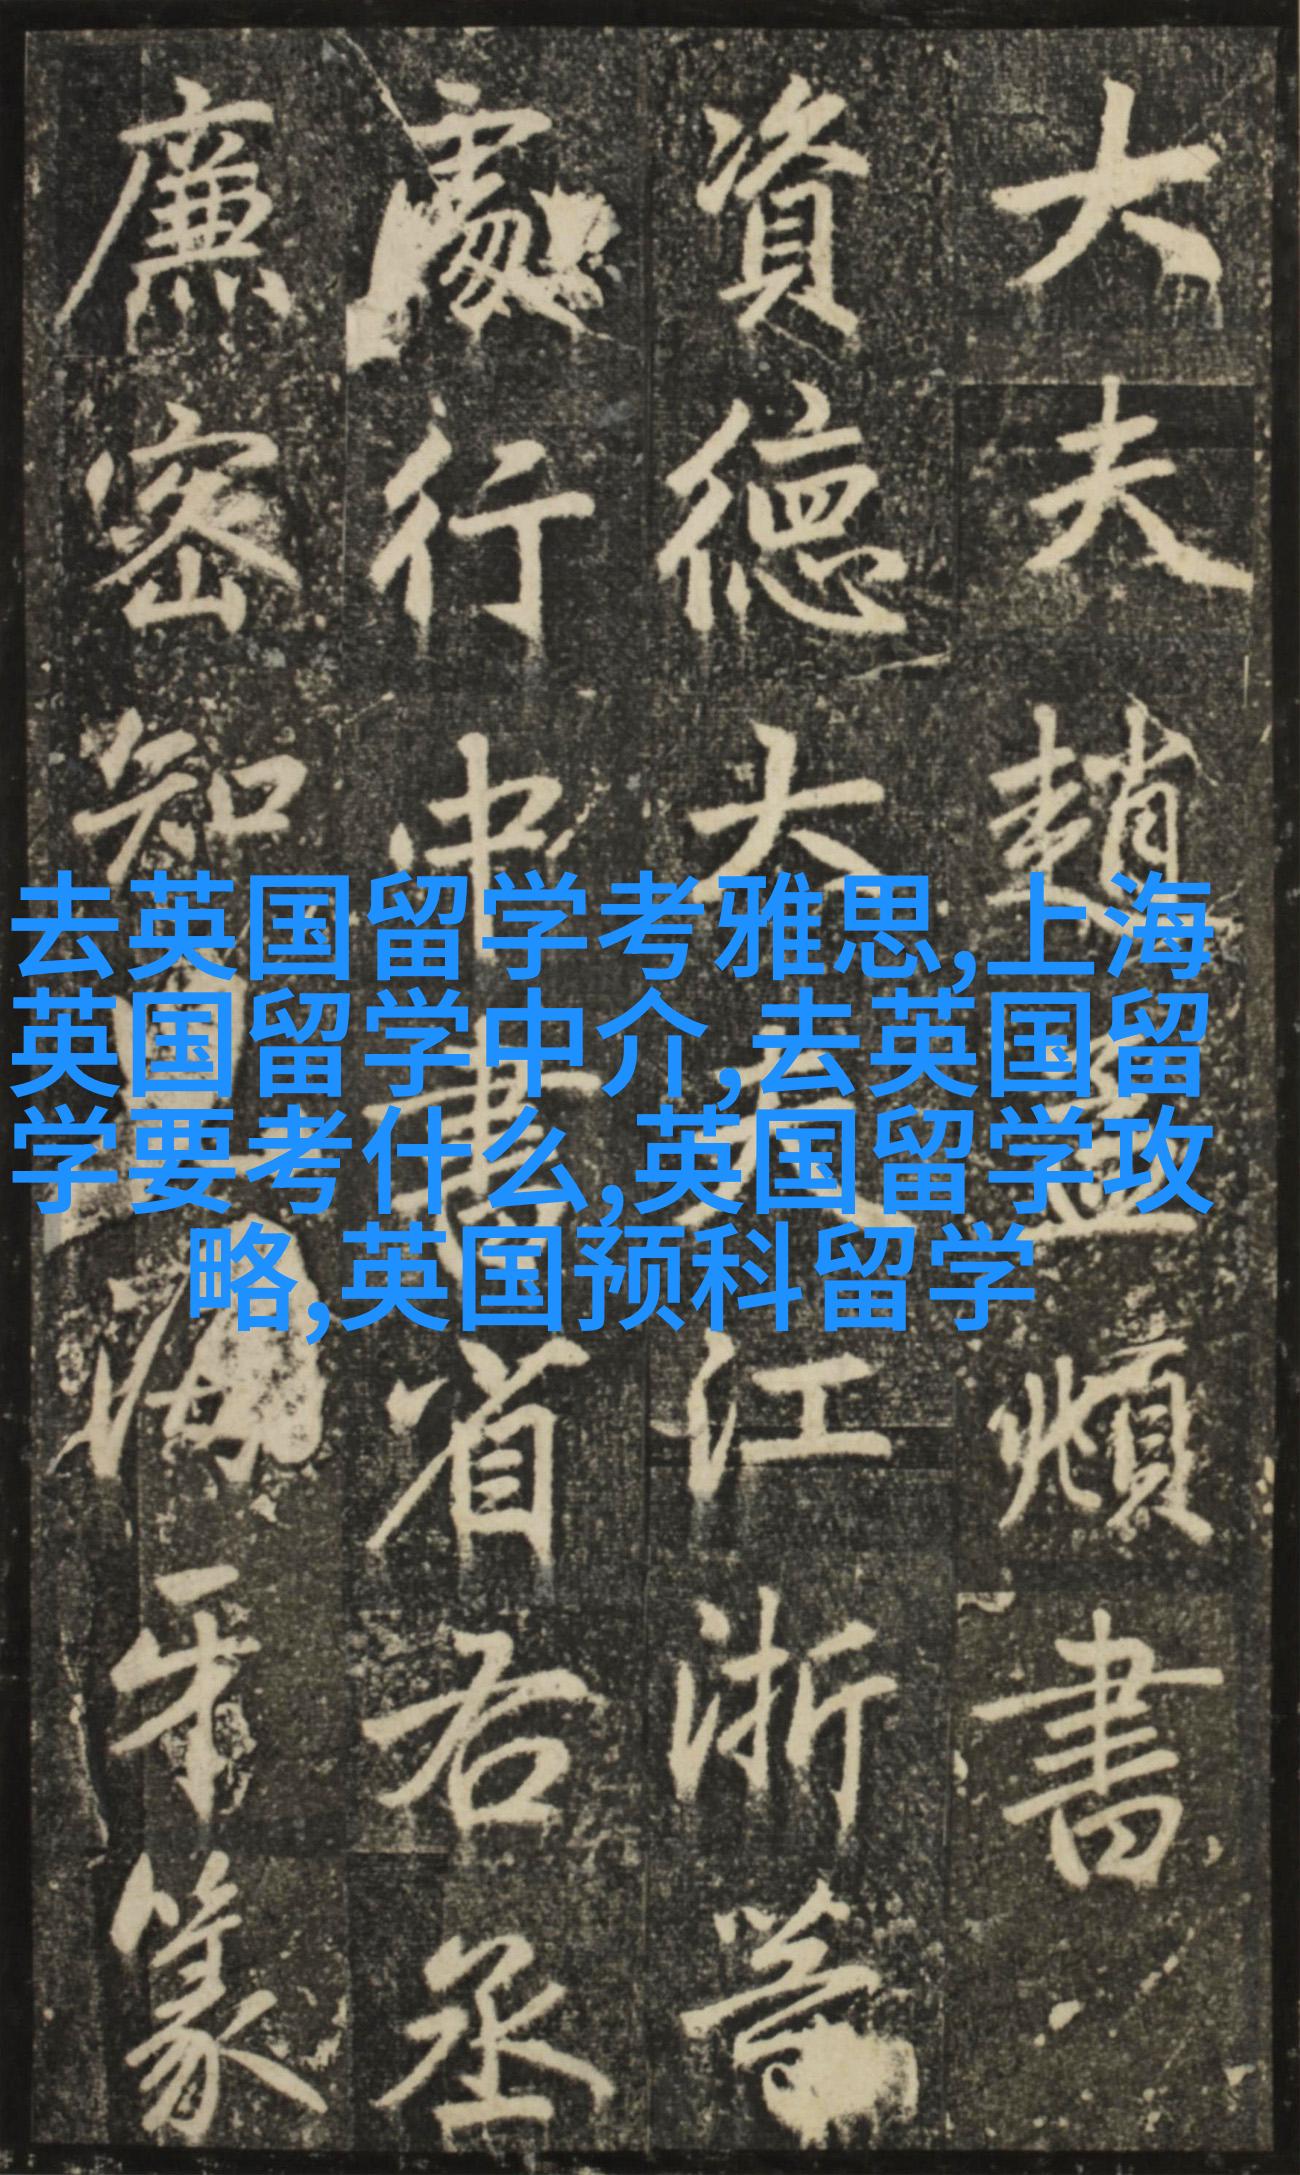 大夫趙孟頫書
資德大夫江浙等
處行中書省右丞
廉密知海牙篆
去英国留学考雅思,上海
英国留学中介,去英国留
学要考什么,英国留学攻
略,英国预科留学